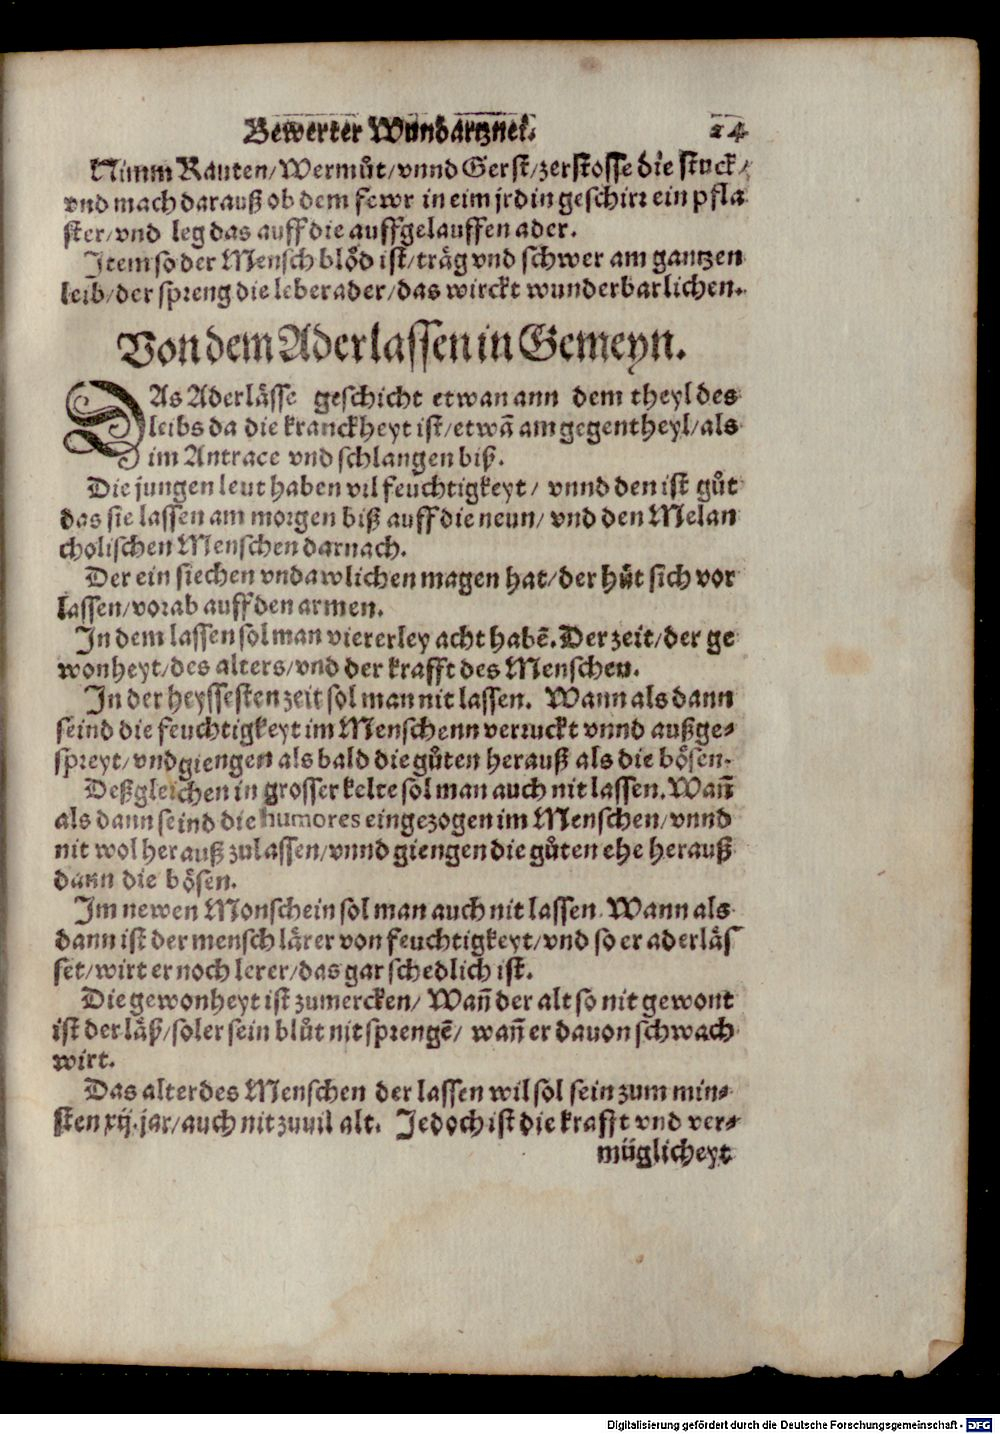 Bewerter Wundartznei. 24
Nimm Rauten/Wermůt/vnnd Gerst/zerstosse die stuck/
vnd mach darauß ob dem fewr in eim jrdin geschirr ein pfla
ster/vnd leg das auff die auffgelauffen ader.
Item so der Mensch blöd ist/träg vnd schwer am gantzen
leib/der spreng die leberader/das wirckt wunderbarlichen.
Von dem Aderlassen in Gemeyn.
DAs Aderlässe geschicht etwan ann dem theyl des
leibs da die kranckheyt ist/etwā am gegentheyl/als
im Antrace vnd schlangen biß.
Die jungen leut haben vil feuchtigkeyt/ vnnd den ist gůt
das sie lassen am morgen biß auff die neun/ vnd den Melan
cholischen Menschen darnach.
Der ein siechen vndawlichen magen hat/der hůt sich vor
lassen/vorab auff den armen.
In dem lassen sol man viererley acht habē. Der zeit/der ge
wonheyt/des alters/vnd der krafft des Menschen.
In der heyssesten zeit sol man nit lassen. Wann als dann
seind die feuchtigkeyt im Menschenn verruckt vnnd außge-
spreyt/vnd giengen als bald die gůten herauß als die bösen.
Deßgleichen in grosser kelte sol man auch nit lassen. Wañ
als dann seind die humores eingezogen im Menschen/vnnd
nit wol herauß zulassen/vnnd giengen die gůten ehe herauß
dann die bösen.
Im newen Monschein sol man auch nit lassen. Wann als
dann ist der mensch lärer von feuchtigkeyt/vnd so er aderläs
set/wirt er noch lerer/das gar schedlich ist.
Die gewonheyt ist zumercken/ Wañ der alt so nit gewont
ist der läß/sol er sein blůt nit sprengē/ wañ er dauon schwach
wirt.
Das alter des Menschen der lassen wil sol sein zum min-
sten xij. jar/auch nit zuuil alt. Jedoch ist die krafft vnd ver-
müglicheyt
Digitalisierung gefördert durch die Deutsche Forschungsgemeinschaft - DFG